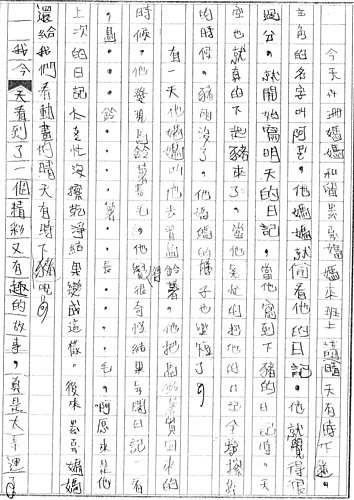 今天什冊媽媽和雲晏晏媽媽來班上講晴天有時下豬。
主角的名字叫阿 。他媽媽就偷看他的日記。他就覺得很
過分。就開始寫明天的日記。當他寫到下豬的日記時。天
空也就真的下起豬來了。當他急忙的把他的日記全擦掉
的時候。豬雨沒了。他媽媽的脖子也變短了。
有一天他媽媽叫他去買 鈴薯。他把馬鈴薯買回來的
時候。他發現馬鈴薯長毛。他覺得很奇怪結果 開日記一看
。馬。鈴。薯。長。毛。啊原來是他
上次的日記太急忙沒擦乾淨結果變成這樣。後來 媽媽
還給我們看動畫們晴天有時下豬呢。
我今天看到了一個精彩又有趣的故事。真是太幸運